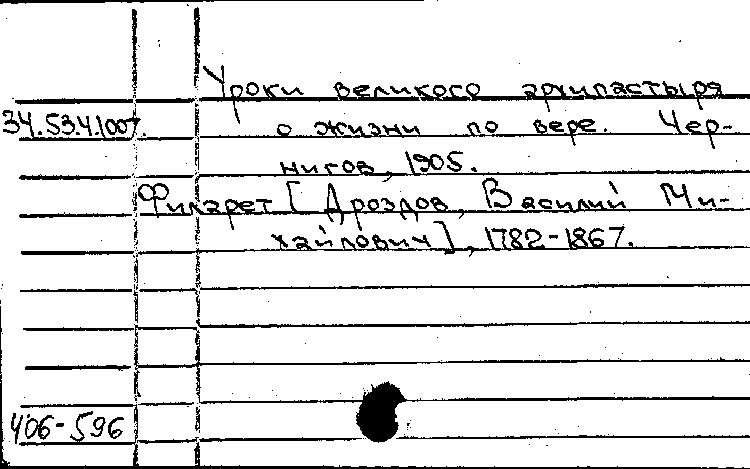 Уроки великого архипастыря
34.53.4.1007.
о жизни по вере. Чер-
нигов, 1905.
Филарет [Дроздов, Василий Ми-
хайлович], 1782-1867.
406-596